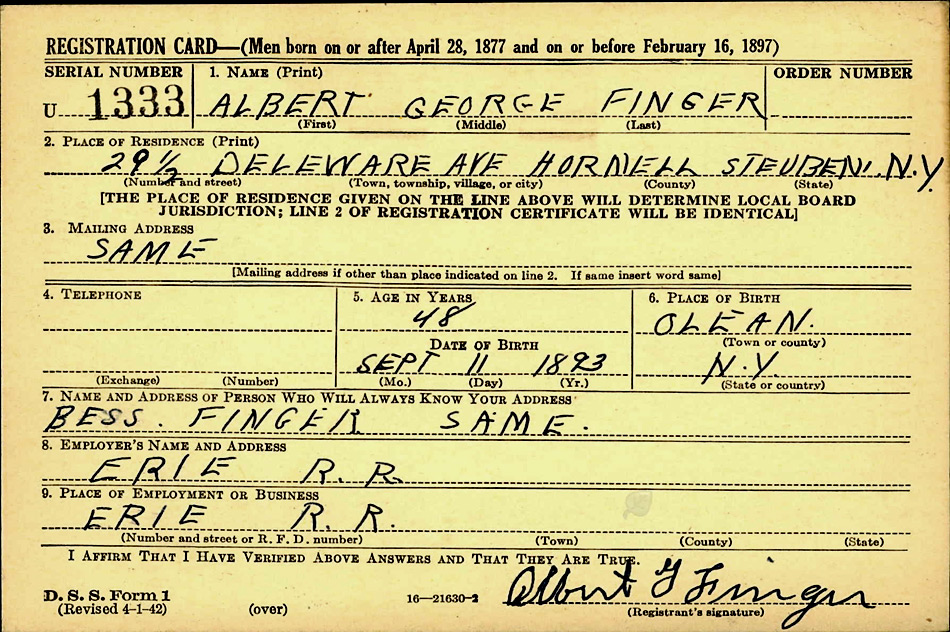 REGISTRATION CARD—(Men born on or after April 28, 1877 and on or before February 16, 1897)
SERIAL NUMBER 1. NAME (Print) ORDER NUMBER
U 1333 ALBERT GEORGE FINGER
(First) (Middle) (Last)
2. PLACE OF RESIDENCE (Print)
29 1/2 DELEWARE AVE HORNELL STEUBEN. N.Y.
(Number and street) (Town, township, village, or city) (County) (State)
[THE PLACE OF RESIDENCE GIVEN ON THE LINE ABOVE WILL DETERMINE LOCAL BOARD
JURISDICTION; LINE 2 OF REGISTRATION CERTIFICATE WILL BE IDENTICAL]
3. MAILING ADDRESS
SAME
[Mailing address if other than place indicated on line 2. If same insert word same]
4. TELEPHONE 5. AGE IN YEARS 6. PLACE OF BIRTH
48 OLEAN.
DATE OF BIRTH (Town or county)
SEPT 11 1893 N.Y
(Exchange) (Number) (Mo.) (Day) (Yr.) (State or country)
7. NAME AND ADDRESS OF PERSON WHO WILL ALWAYS KNOW YOUR ADDRESS
BESS. FINGER SAME.
8. EMPLOYER'S NAME AND ADDRESS
ERIE R.R.
9. PLACE OF EMPLOYMENT OR BUSINESS
ERIE R.R.
(Number and street or R. F. D. number) (Town) (County) (State)
I AFFIRM THAT I HAVE VERIFIED ABOVE ANSWERS AND THAT THEY ARE TRUE.
D. S. S. Form 1
(Revised 4-1-42) (over) 16—21630-2 Albert G Finger
(Registrant's signature)